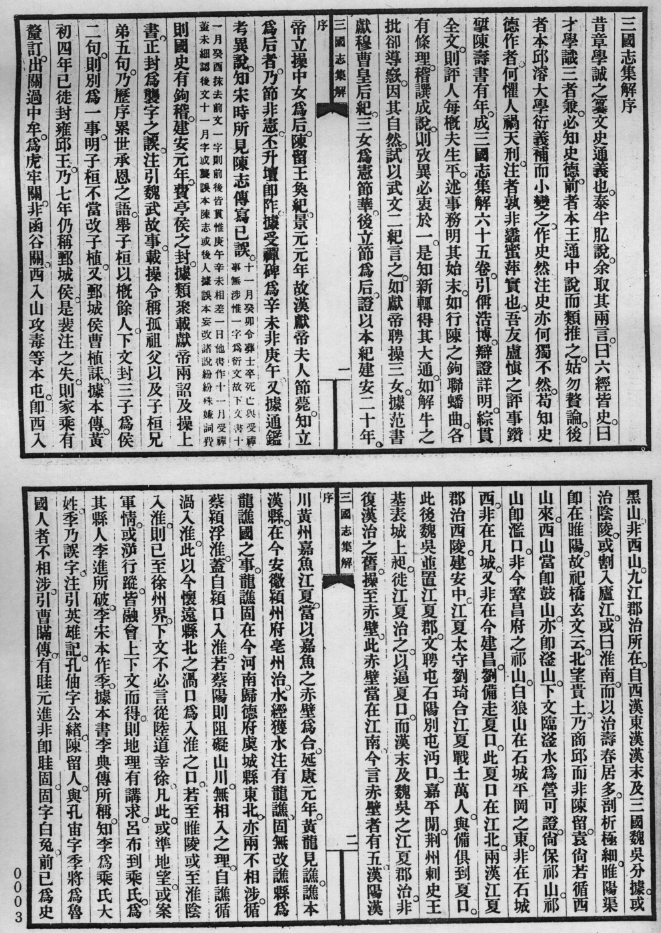 三國志集解序
昔章學誠之纂文史通義也。泰半肊說。余取其兩言。曰六經皆史。曰
才學識三者兼。必知史德。前者本王通中說而類推之。姑勿贅論。後
者本邱濬大學衍義補而小變之。作史然。注史亦何獨不然。苟知史
德。作者何懼人禍天刑。注者孰非蠡蜜蓱實也。吾友盧愼之評事鑽
揅陳壽書有年。成三國志集解六十五卷。引偁浩博。辯證詳明。綜貫
全文。則評人每槪夫生平。述事務明其始末。如行陳之鉤聯蟠曲。各
有條理。稽譔成說。則攷異必衷於一是。知新輒得其大通。如解牛之
批卻導窾。因其自然。試以武文二紀言之。如獻帝聘操三女。據范書
獻穆曹皇后紀。三女爲憲節華。後立節爲后。證以本紀建安二十年。
三國志集解
序
一
帝立操中女爲后。陳留王奐紀景元元年。故漢獻帝夫人節薨。知立
爲后者。乃節非憲。丕升壇卽阼。據受禪碑爲辛未非庚午。又據通鑑
考異說。知宋時所見陳志傳寫已誤。十一月癸卯令葬士卒死亡與受禪事無涉惟一字爲衍文故下文書十
一月癸酉抹去前文一字則前後皆貫惟庚午辛未相差一日他書作十一月受禪蓋未細認後文十一月字或襲誤本陳志或後人據誤本妄改諸說紛紛殊嫌詞費
則國史有鉤稽。建安元年費亭侯之封。據類聚載獻帝兩詔及操上
書。正封爲襲字之誤。注引魏武故事載操令稱孤祖父以及子桓兄
弟五句。乃歷序累世承恩之語。舉子桓以槪餘人。下文封三子爲侯
二句。則別爲一事。明子桓不當改子植。又鄄城侯曹植誄。據本傳黃
初四年已徙封雍邱王。乃七年仍稱鄄城侯。是裴注之失。則家乘有
釐訂。出關過中牟。爲虎牢關。非函谷關。西入山攻毒等本屯。卽西入
黑山非西山。九江郡治所在。自西漢東漢漢末及三國魏吳分據。或
治陰陵。或割入廬江。或曰淮南。而以治壽春居多。剖析極細。睢陽渠
卽在睢陽。故祀橋玄文云。北望貴土。乃商邱而非陳留。袁尙若循西
山來。西山當卽鼓山。亦卽滏山。下文臨滏水爲營可證。尙保祁山。祁
山卽濫口。非今鞏昌府之祁山。白狼山在石城平岡之東。非在石城
西。非在凡城。又非在今建昌。劉備走夏口。此夏口在江北。兩漢江夏
郡治西陵。建安中江夏太守劉琦合江夏戰士萬人。與備俱到夏口。
此後魏吳並置江夏郡。文聘屯石陽。別屯沔口。嘉平閒荆州刺史王
基表城上昶。徙江夏治之。以逼夏口。而漢末及魏吳之江夏郡治。非
復漢治之舊。操至赤壁。此赤壁當在江南。今言赤壁者有五。漢陽漢
三國志集解
序
二
川黃州嘉魚江夏。當以嘉魚之赤壁爲合。延康元年黃龍見譙。譙本
漢縣。在今安徽潁州府亳州治。水經獲水注有龍譙固。無改譙縣爲
龍譙國之事。龍譙固在今河南歸德府虞城縣東北。亦兩不相涉。循
蔡潁浮淮。蓋自潁口入淮。若蔡陽則阻礙山川。無相入之理。自譙循
渦入淮。此以今懷遠縣北之渦口爲入淮之口。若至睢陵或至淮陰
入淮。則已至徐州界。下文不必言從陸道幸徐。凡此或準地望。或案
軍情。或泝行蹤。皆融會上下文而得。則地理有講求。呂布到乘氏。爲
其縣人李進所破。李宋本作季。據本書李典傳所稱。知李爲乘氏大
姓。季乃誤字。注引英雄記。孔伷字公緒。陳留人。與孔宙字季將爲魯
國人者不相涉。引曹瞞傳有眭元進。非卽眭固。固字白兔。前已爲史
0003